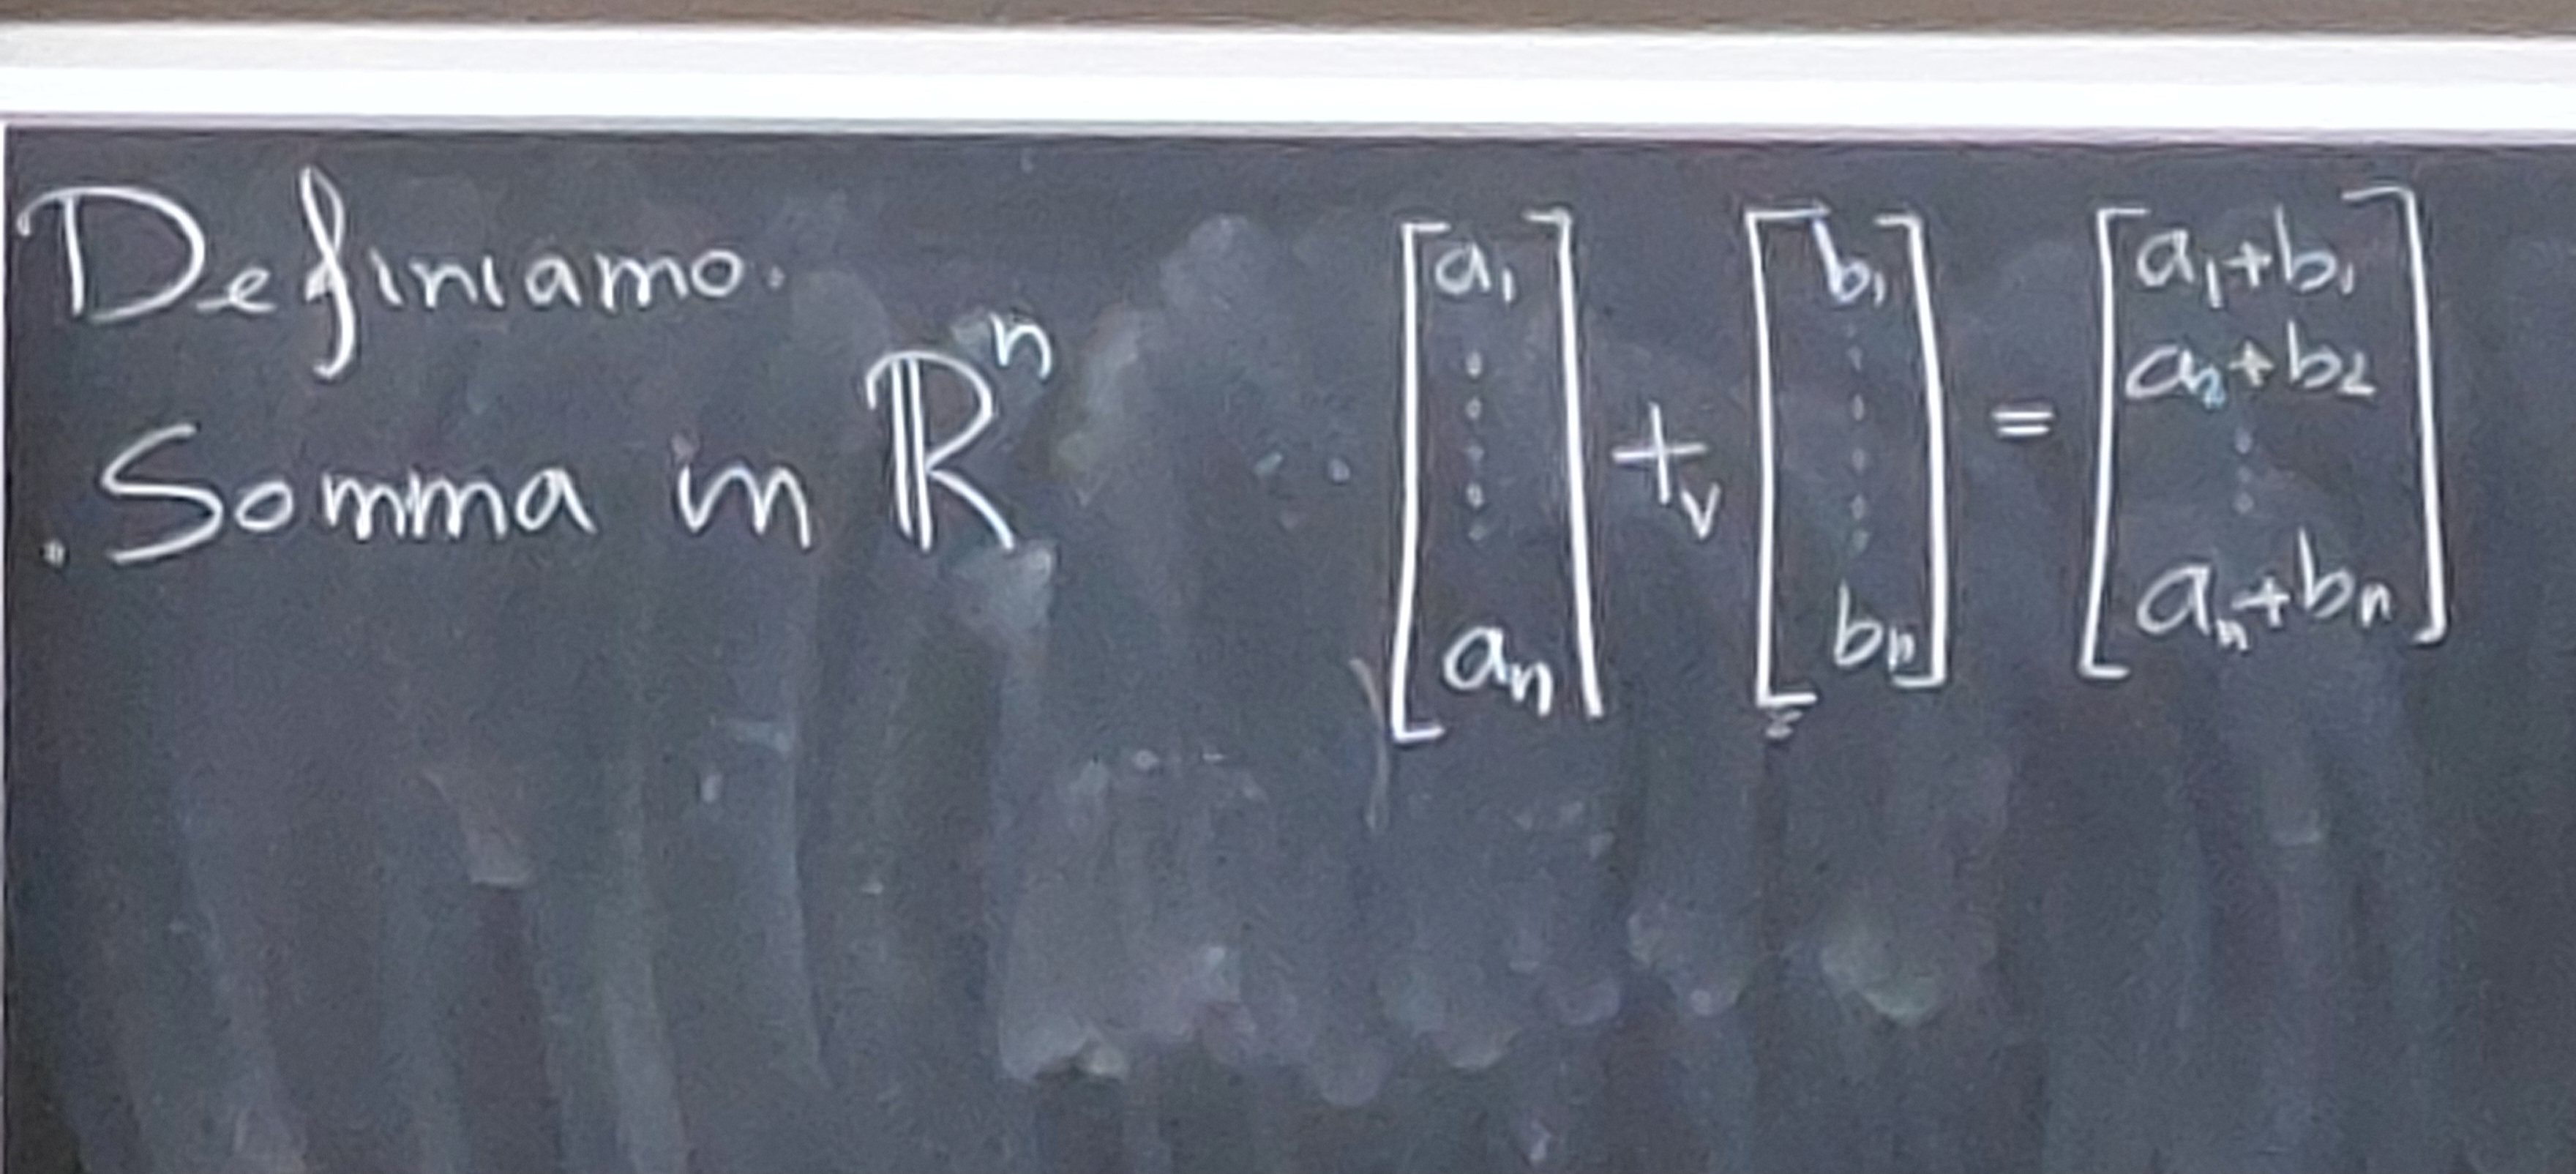 Definiamo.
. Somma in ℝⁿ
[a₁ ⋮ aₙ] +ᵥ [b₁ ⋮ bₙ] = [a₁+b₁ a₂+b₂ ⋮ aₙ+bₙ]